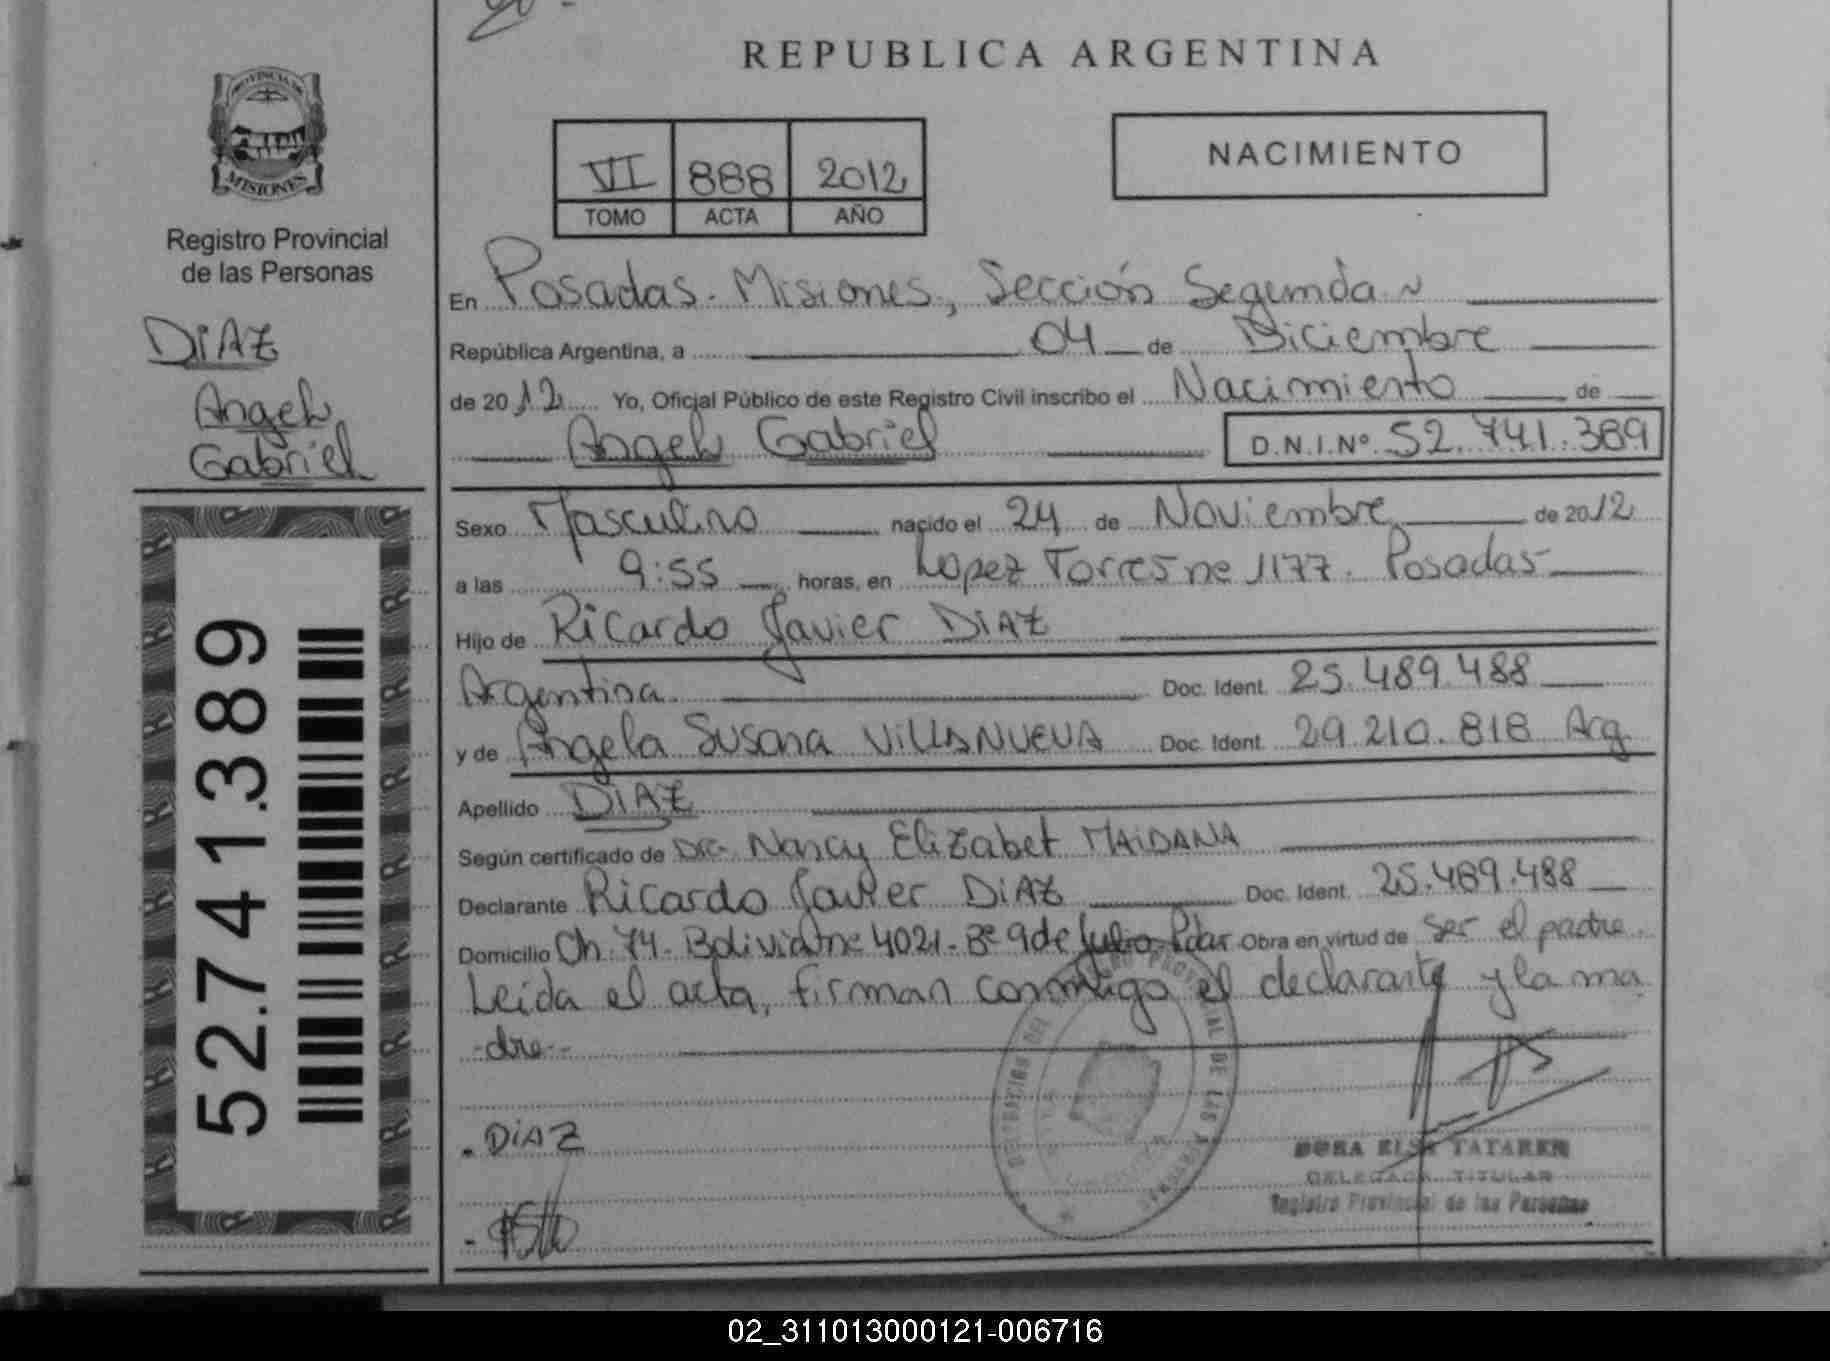 REPUBLICA ARGENTINA
PROVINCIA DE
MISIONES
Registro Provincial
de las Personas
DIAZ
Angel
Gabriel
52.741.389
VI 888 2012
TOMO ACTA AÑO
NACIMIENTO
En Posadas. Misiones, Sección Segunda
República Argentina, a 04 de Diciembre
de 2012 Yo, Oficial Público de este Registro Civil inscribo el Nacimiento de
Angel Gabriel D.N.I.Nº 52.741.389
Sexo Masculino nacido el 24 de Noviembre de 2012
a las 9:55 horas, en Lopez Torres ne 1177. Posadas
Hijo de Ricardo Javier DIAZ
Argentina. Doc. Ident. 25.489.488
y de Angela Susana VILLANUEVA Doc. Ident. 29.210.818 Arg
Apellido DIAZ
Según certificado de Dra. Nancy Elizabet MAIDANA
Declarante Ricardo Javier DIAZ Doc. Ident. 25.489.488
Domicilio Ch. 74. Bolivia ne 4021. Bº 9 de Julio. Pdas Obra en virtud de ser el padre.
Leída el acta, firman conmigo el declarante y la ma
-dre--
DIAZ
DELEGACION DEL REGISTRO PROVINCIAL DE LAS PERSONAS
DORA ELSA TATAREN
DELEGADA TITULAR
Registro Provincial de las Personas
02_311013000121-006716